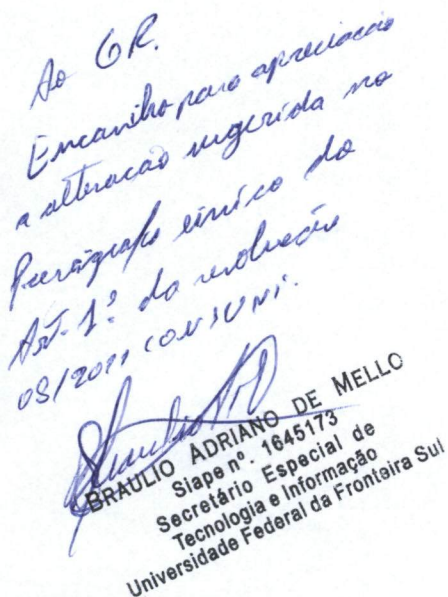 Ao GR.
Encaminho para apreciação
a alteração sugerida no
Parágrafo único do
Art. 1º da resolução
08/2011 CONSUNI.
BRAULIO ADRIANO DE MELLO
Siape nº. 1645173
Secretário Especial de
Tecnologia e Informação
Universidade Federal da Fronteira Sul